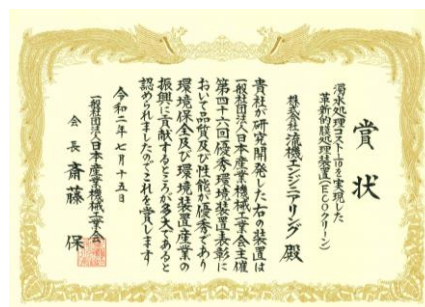 賞状
濁水処理コスト1/10を実現した
革新的膜処理装置(ECOクリーン)
株式会社流機エンジニアリング 殿
貴社が研究開発した右の装置は
一般社団法人日本産業機械工業会主催
第四十六回優秀環境装置表彰に
おいて品質及び性能が優秀であり
環境保全及び環境装置産業の
振興に貢献するところが多大であると
認められましたのでこれを賞します
令和二年七月十五日
一般社団法人日本産業機械工業会
会長 斎藤 保